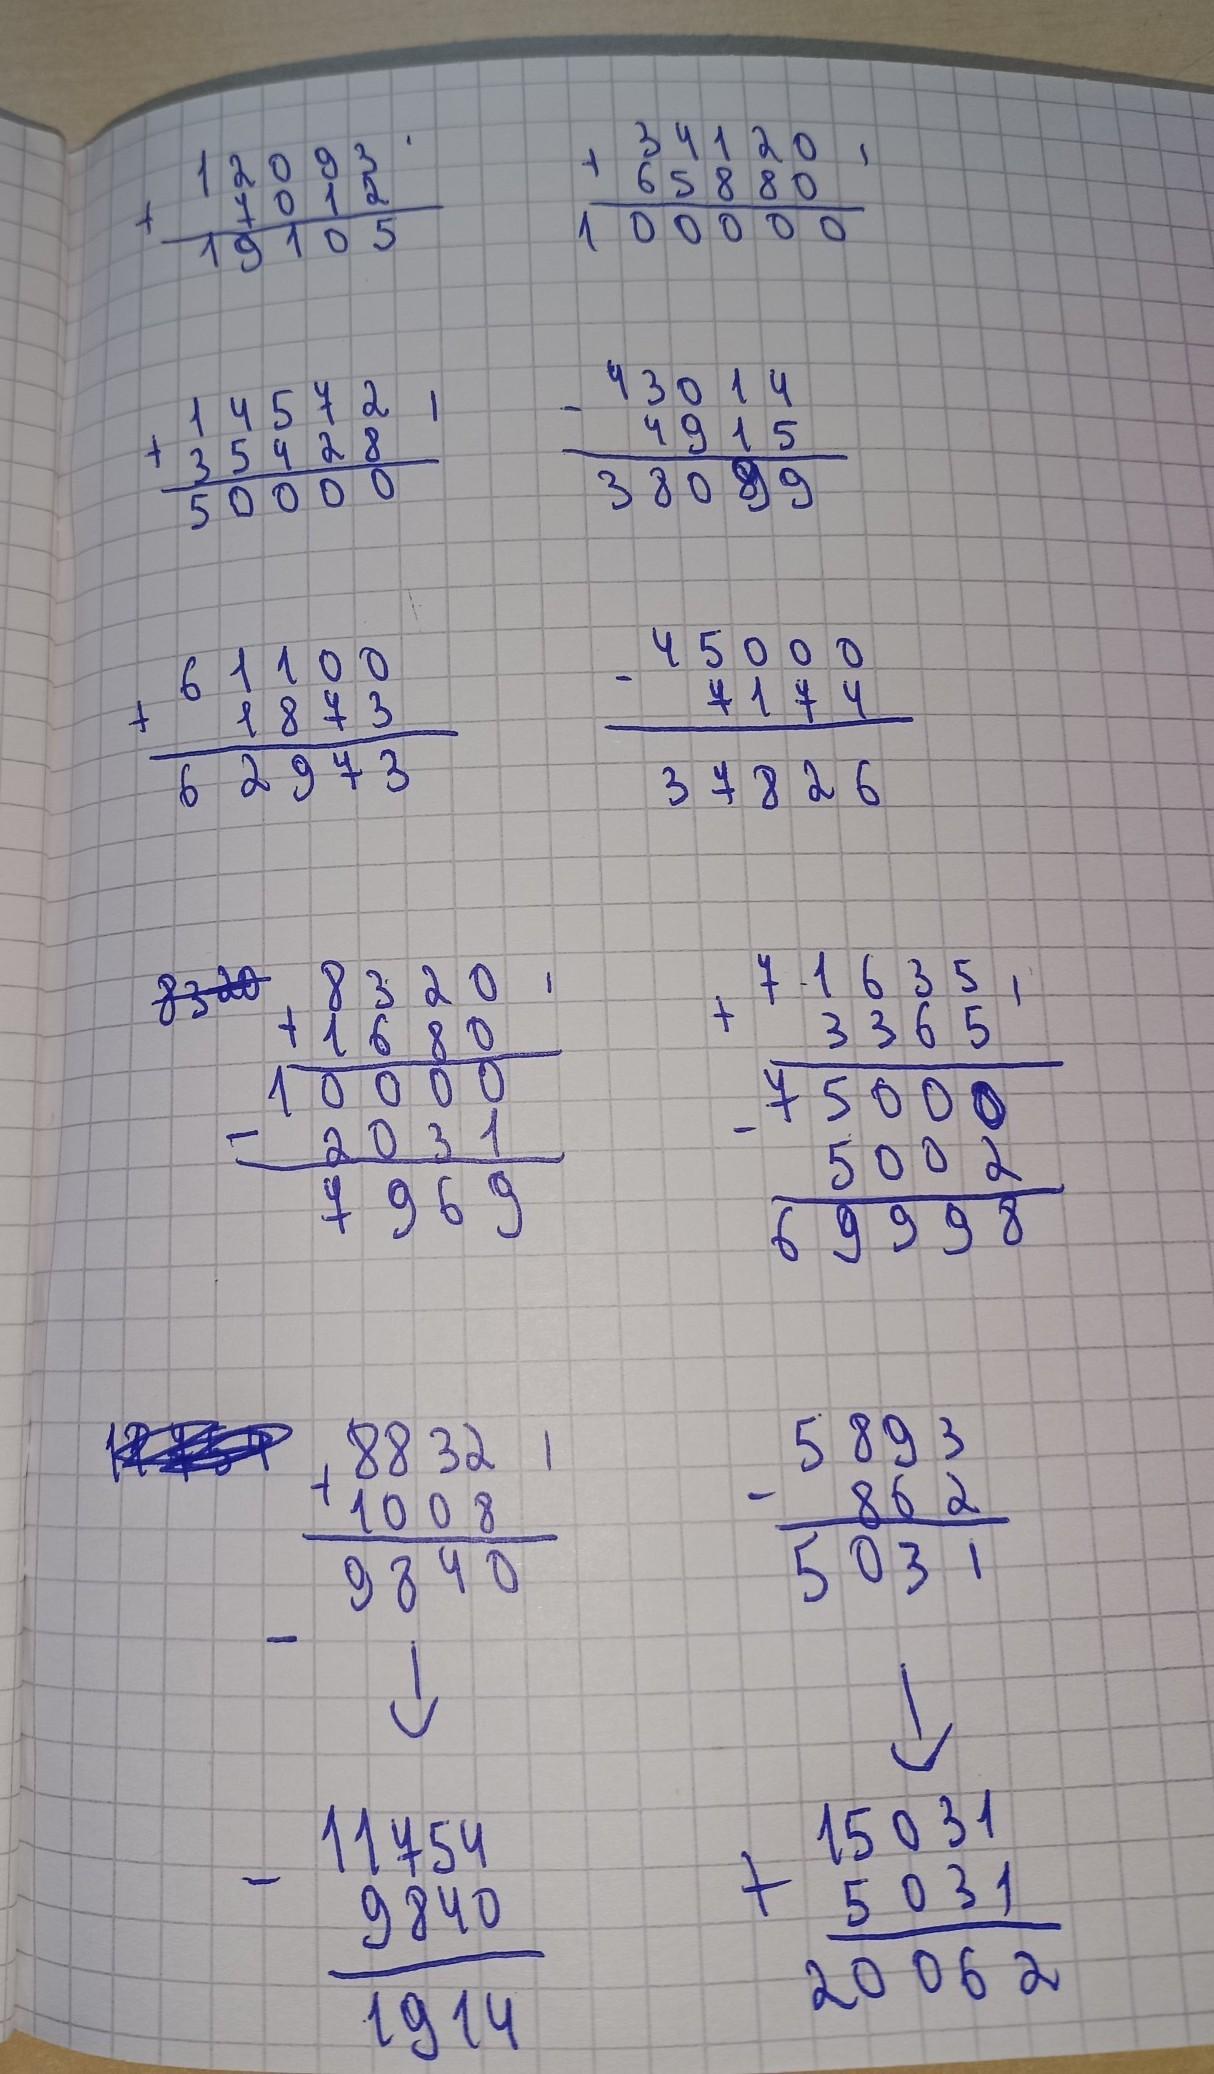 12093
+ 7012
19105
+ 34120
65880
100000
14572
+ 35428
50000
- 43014
4915
38099
61100
+ 1873
62973
- 45000
7174
37826
8320
8320
+ 1680
10000
- 2031
7969
71635
+ 3365
75000
- 5002
69998
8832
+ 1008
9840
-
↓
- 11754
9840
1914
5893
- 862
5031
↓
15031
+ 5031
20062